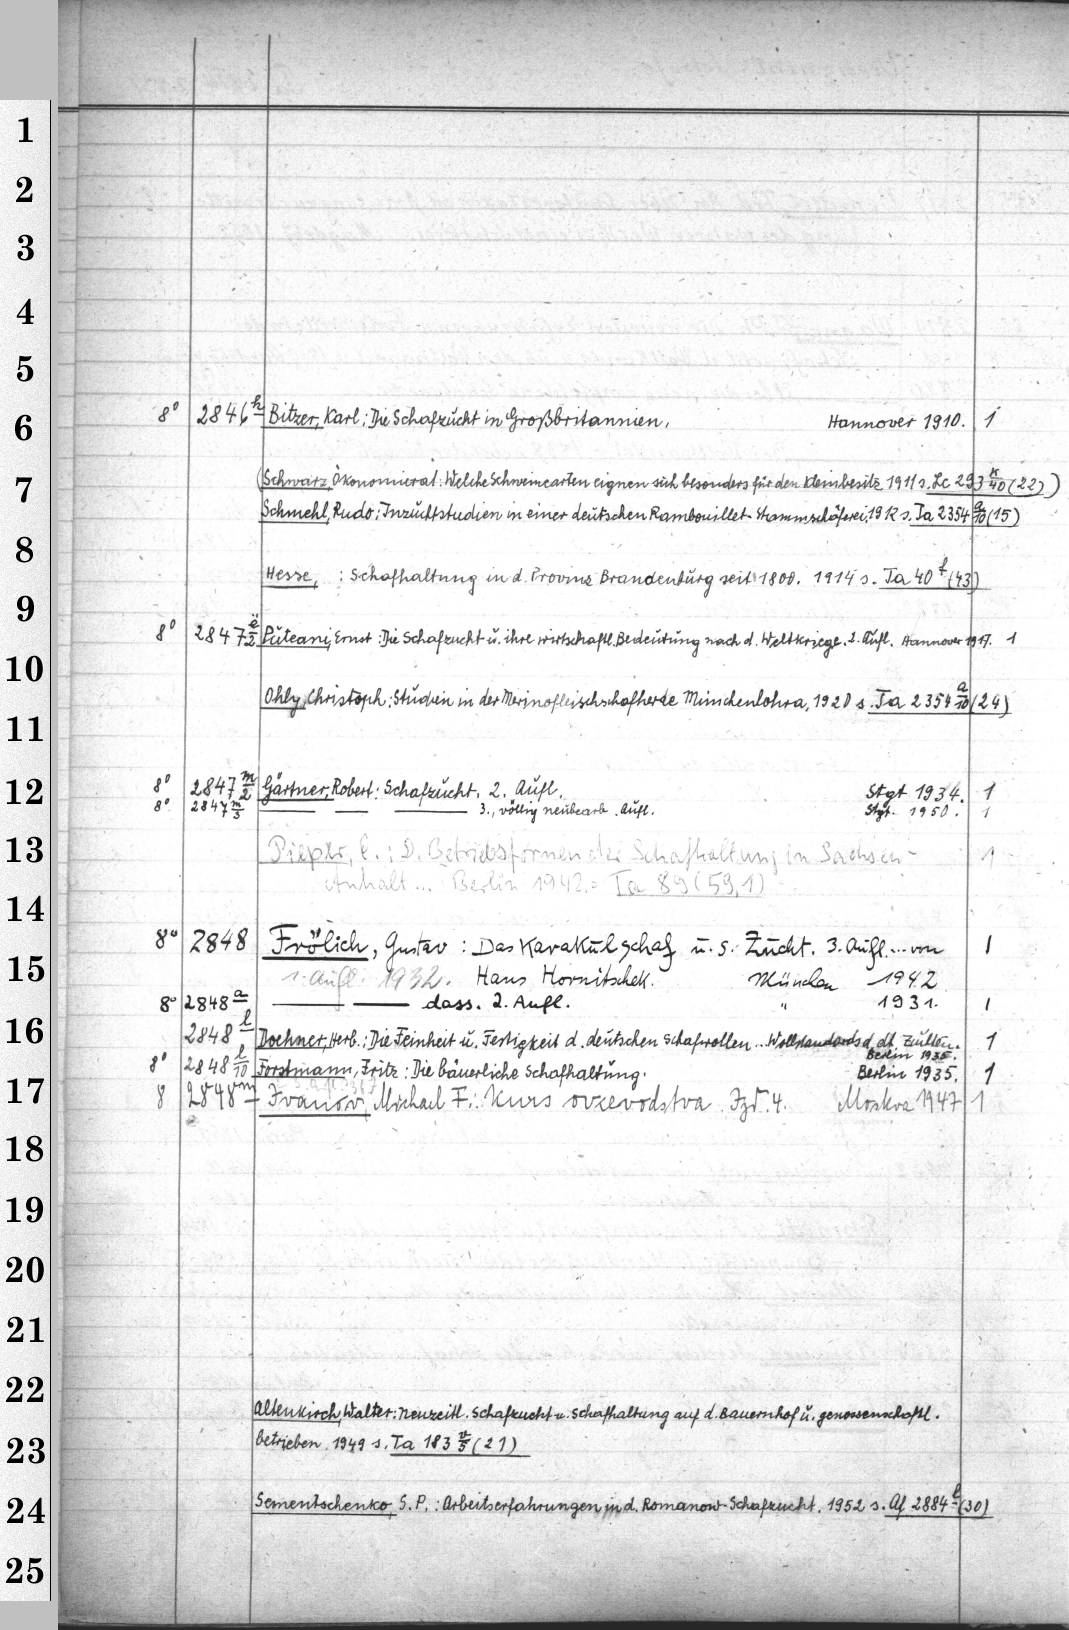 1
2
3
4
5
6
8° 2846 h Bitzer, Karl: Die Schafzucht in Großbritannien. Hannover 1910. 1
7
(Schwarz, Ökonomierat: Welche Schweinearten eignen sich besonders für den Kleinbesitz 1911 s. Lc 293 k/40 (22))
Schmehl, Rudo: Inzuchtstudien in einer deutschen Rambouillet-Stammschäferei, 1912 s. Ta 2354 a/10 (15)
8
Hesse, : Schafhaltung in d. Provinz Brandenburg seit 1800. 1914 s. Ta 40 f (43)
9
8° 2847 e/2 Püteani, Ernst: Die Schafzucht u. ihre wirtschaftl. Bedeutung nach d. Weltkriege. 2. Aufl. Hannover 1917. 1
10
Ohly, Christoph: Studien in der Merinofleischschafherde Münchenlohra, 1920 s. Ta 2354 a/10 (24)
11
12
8° 2847 m/2 Gärtner, Robert: Schafzucht. 2. Aufl. Stgt 1934. 1
8° 2847 m/3 — — — 3., völlig neubearb. Aufl. Stgt. 1950. 1
13
Pieper, C.: D. Betriebsformen der Schafhaltung in Sachsen- 1
Anhalt ... Berlin 1942. = Ta 89 (59,1)
14
8° 2848 Frölich, Gustav: Das Karakulschaf u. s. Zucht. 3. Aufl. ... von 1
15
1. Aufl. 1932. Hans Hornitschek. München 1942
8° 2848 a — — dass. 2. Aufl. " 1931. 1
16
2848 l Doehner, Herb.: Die Feinheit u. Festigkeit d. deutschen Schafwollen ... Wollstandards d. dt. Zuchten. Berlin 1935. 1
8° 2848 l/10 Forstmann, Fritz: Die bäuerliche Schafhaltung. Berlin 1935. 1
17
8 2848 vm Ivanov, Michael F.: Kurs ovcevodstva. Izd. 4. Moskva 1947 1
18
19
20
21
22
Altenkirch, Walter: Neuzeitl. Schafzucht u. Schafhaltung auf d. Bauernhof u. genossenschaftl.
betrieben. 1949 s. Ta 183 v/5 (21)
23
24
Sementschenko, S. P.: Arbeitserfahrungen in d. Romanow-Schafzucht. 1952 s. Af 2884 l (30)
25